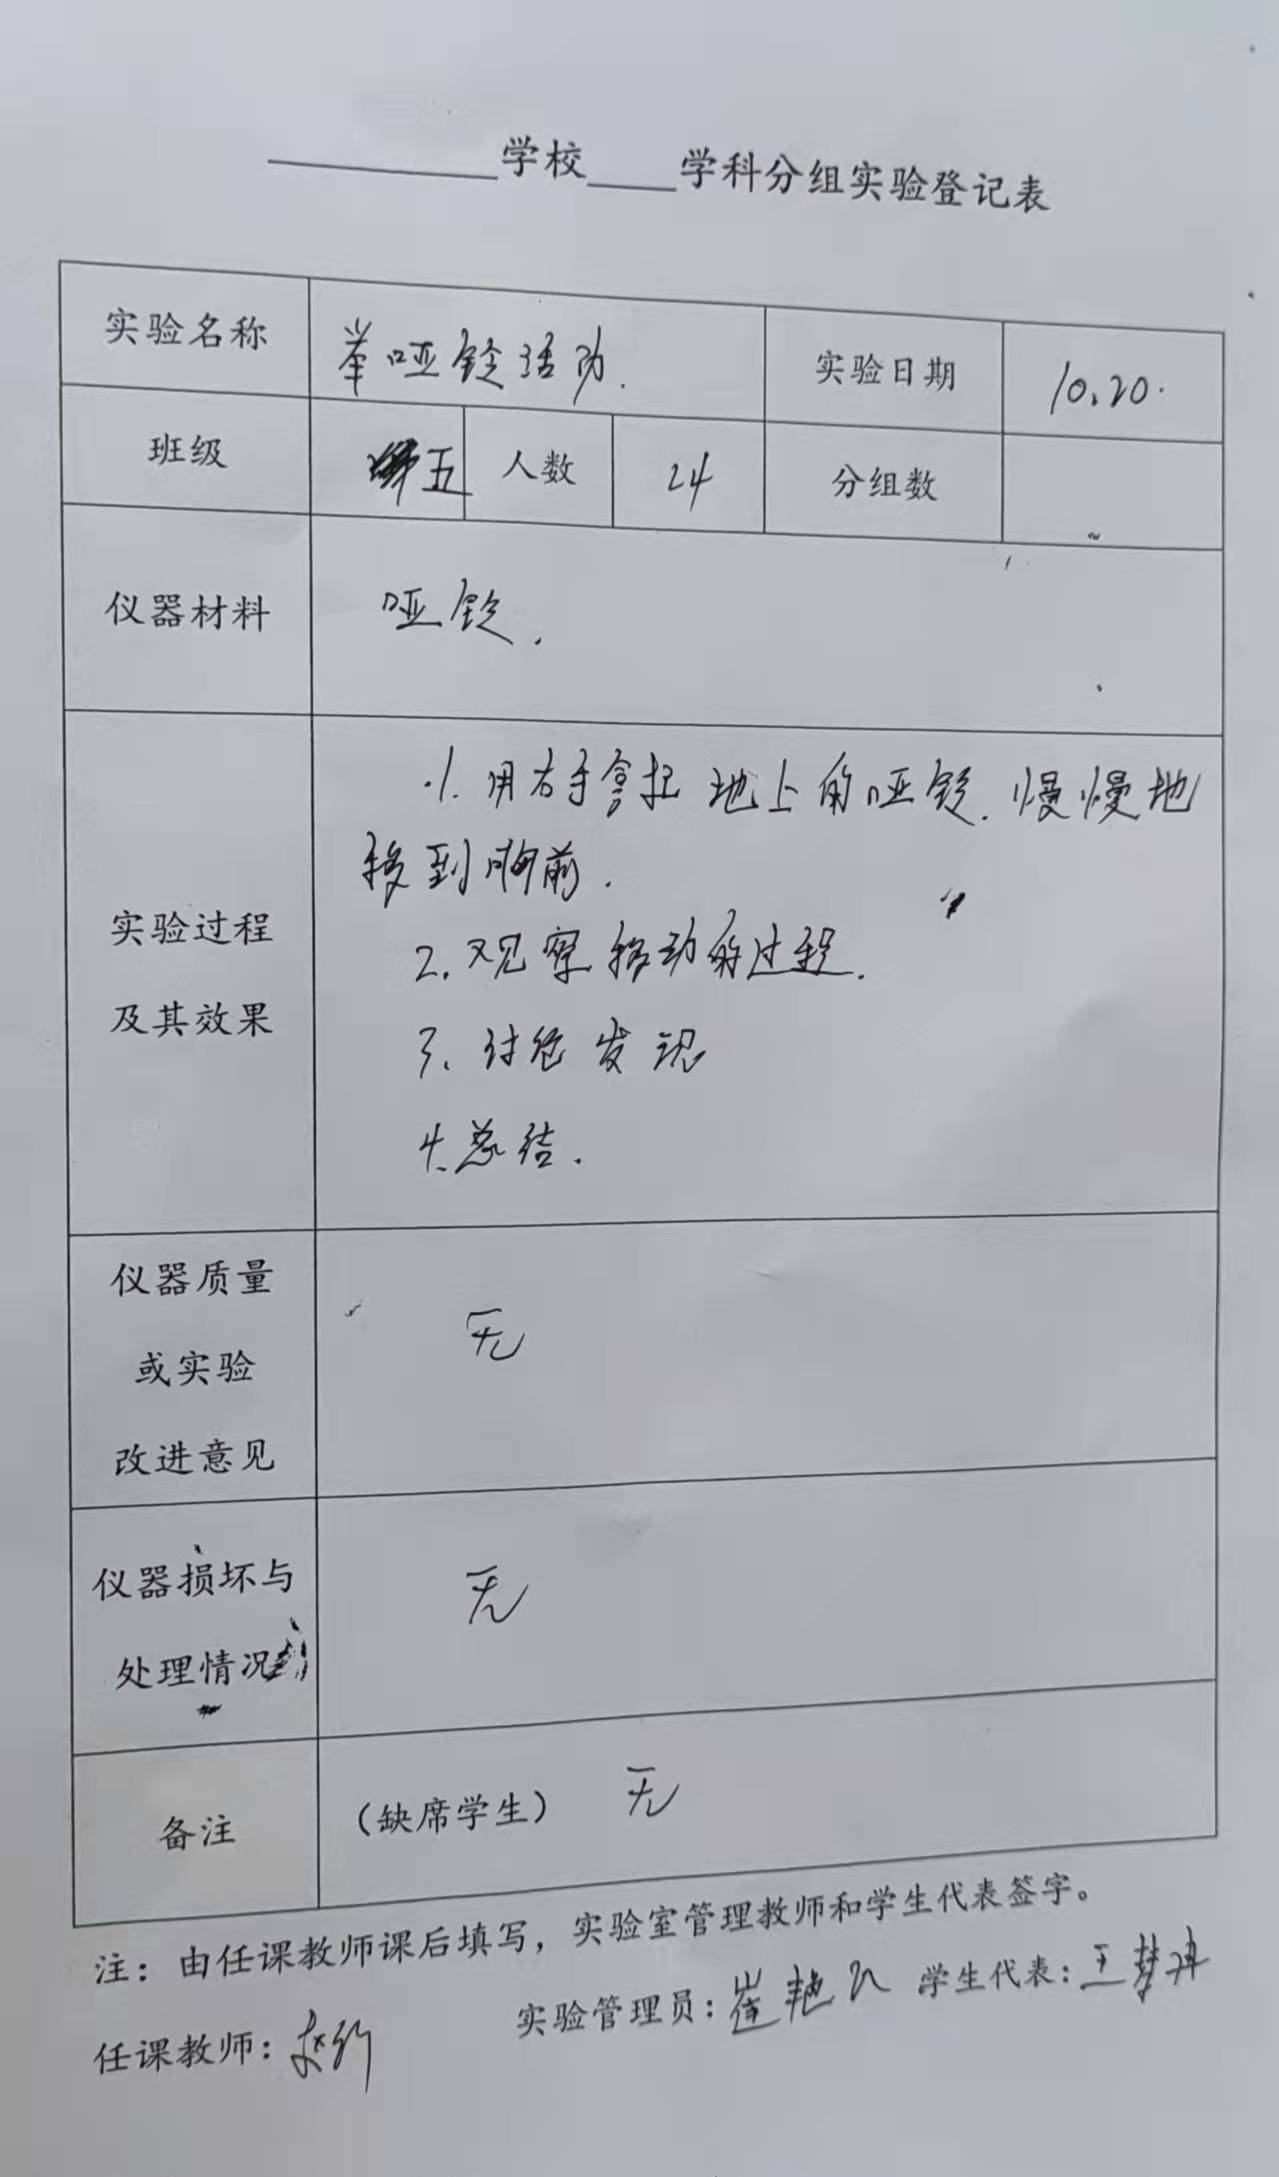 ________学校____学科分组实验登记表
实验名称 举哑铃活动. 实验日期 10.20.
班级 五 人数 24 分组数
仪器材料 哑铃.
1. 用右手拿起地上的哑铃. 慢慢地
移到胸前.
实验过程
及其效果
2. 观察移动的过程.
3. 讨论发现
4. 总结.
仪器质量
或实验
改进意见
无
仪器损坏与
处理情况
无
备注 (缺席学生) 无
注：由任课教师课后填写，实验室管理教师和学生代表签字。
任课教师： 实验管理员：崔艳 学生代表：王梦